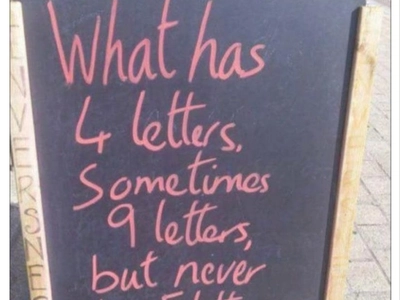 What has
4 letters,
Sometimes
9 letters,
but never